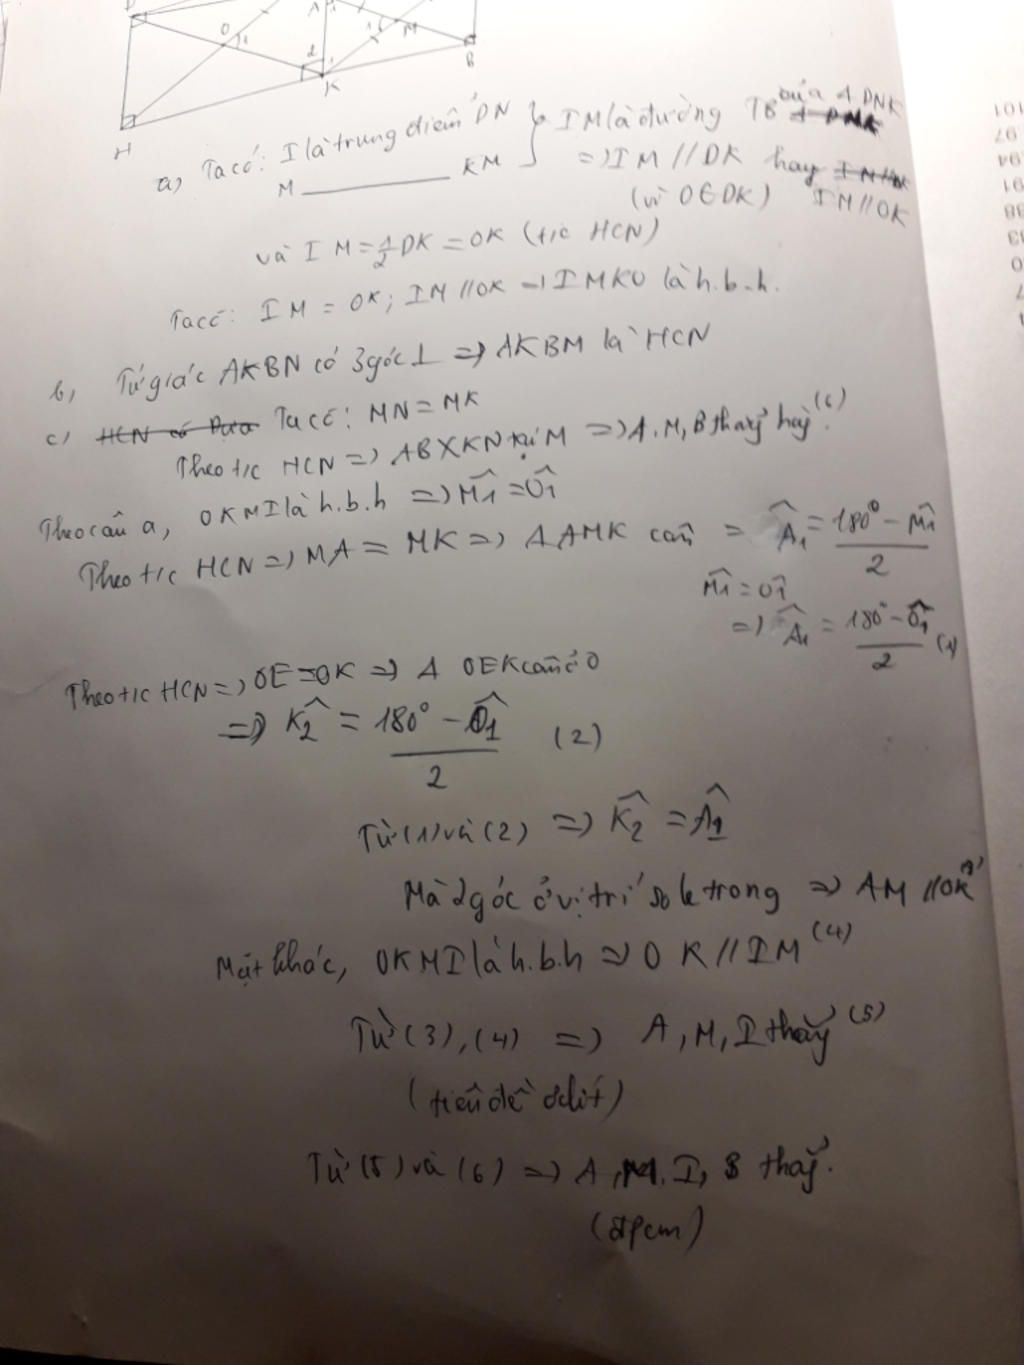 D
O 1
A 1
1
M
2
1
K
B
H
a, Ta có: I là trung điểm DN } IM là đường TB của Δ DNK
M ________ KM => IM // DK hay IM // OK
(vì O∈DK)
và IM = 1/2 DK = OK (t/c HCN)
Ta có: IM = OK; IM // OK → IMKO là h.b.h.
b, Tứ giác AKBN có 3 góc ⊥ => AKBM là HCN
c, Ta có: MN = MK
Theo t/c HCN => AB X KN tại M => A, M, B thẳg hàg (6)
Theo câu a, OKMI là h.b.h => M̂1 = Ô1
Theo t/c HCN => MA = MK => Δ AMK cân = Â1 = 180° - M̂1 / 2
M̂1 = Ô1
=> Â1 = 180° - Ô1 / 2 (1)
Theo t/c HCN => OE = OK => Δ OEK cân ở O
=> K̂2 = 180° - Ô1 / 2 (2)
Từ (1) và (2) => K̂2 = Â1
Mà 2 góc ở vị trí so le trong => AM // OK (3)
Mặt khác, OKMI là h.b.h => OK // IM (4)
Từ (3), (4) => A, M, I thẳg (5)
(tiên đề ơclit)
Từ (5) và (6) => A, M, I, B thẳg.
(đpcm)
101
97
94
91
88
83
80